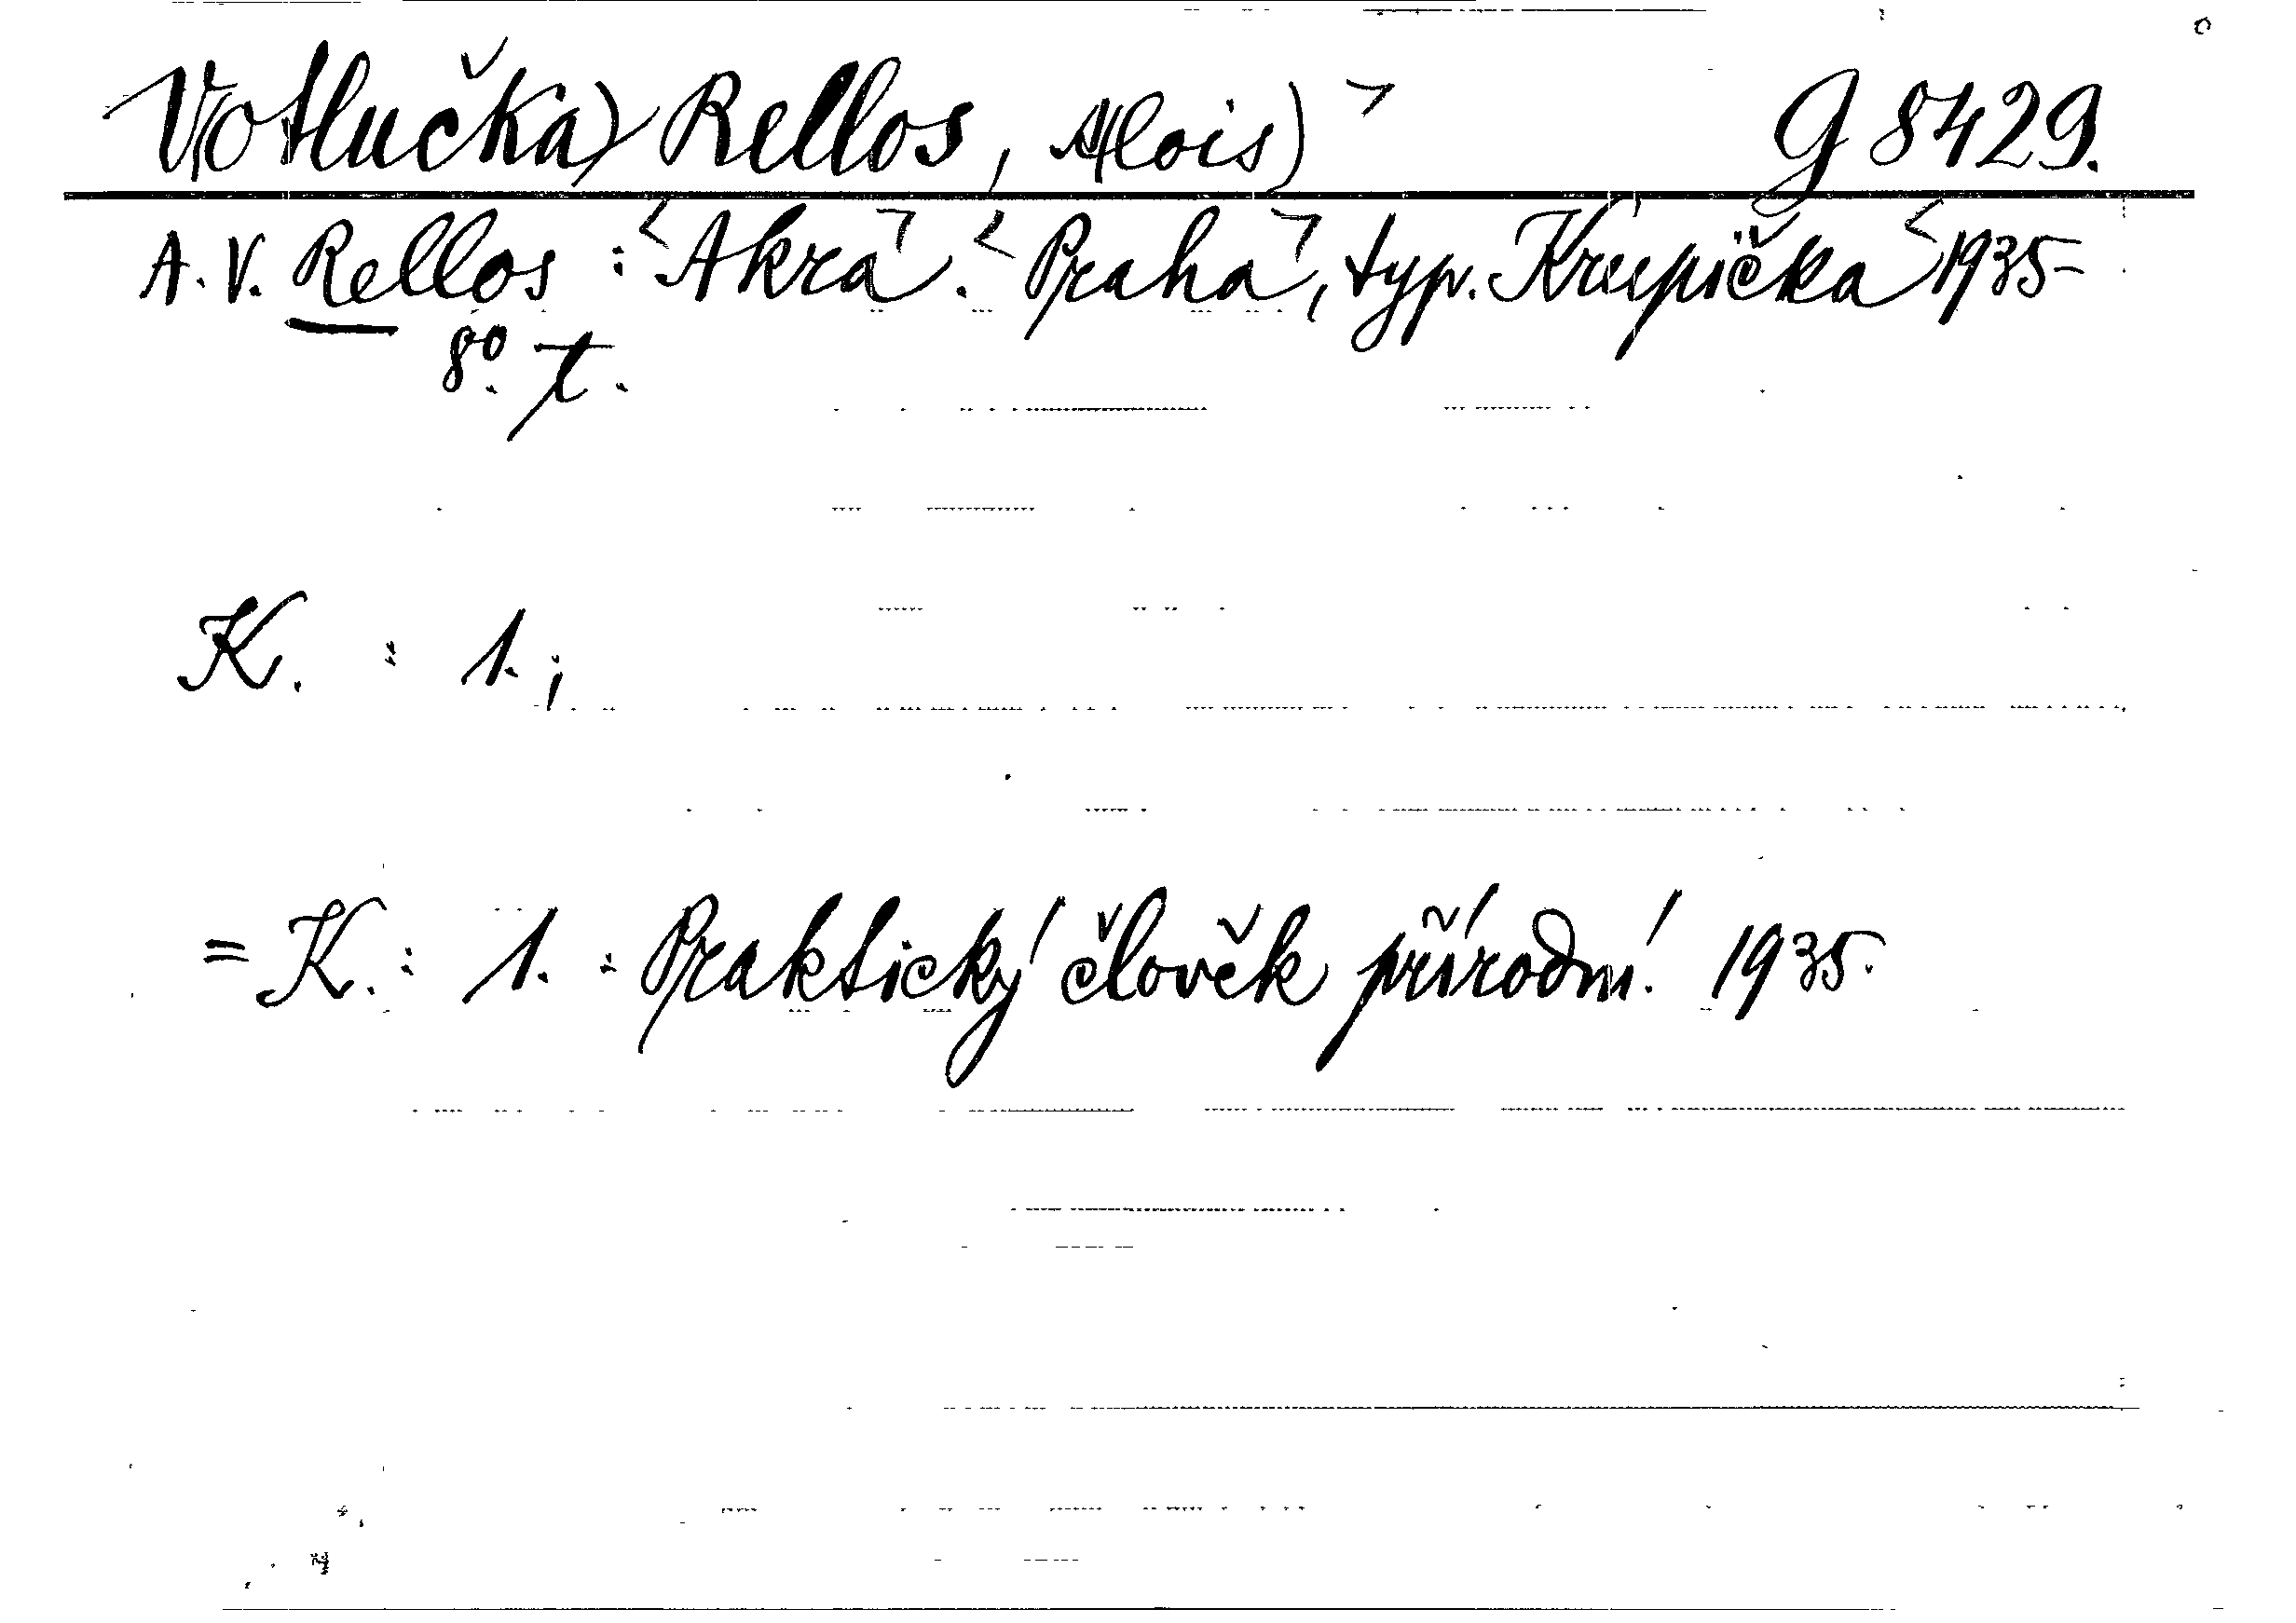 Votlučka) Rellos, Alois) ⟩ G 8429.
A. V. Rellos : ⟨Akra⟩. ⟨Praha⟩, typ. Krupička ⟨1935-
8°. T.
K. : 1. ;
= K. : 1. : Praktický člověk přírodní. 1935.